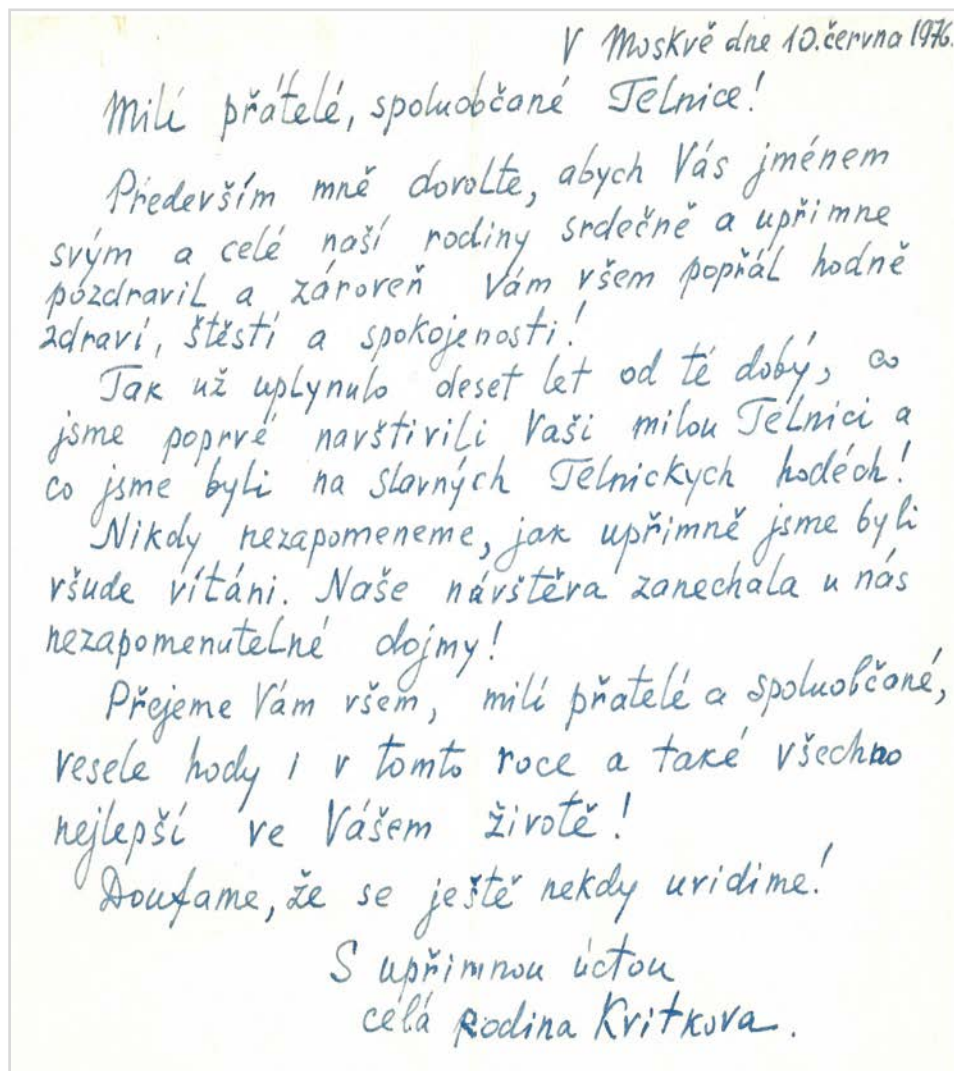 V Moskvě dne 10. června 1976.
Milí přátelé, spoluobčané Telnice!
Především mně dovolte, abych Vás jménem
svým a celé naší rodiny srdečně a upřimne
pozdravil a zároveň Vám všem popřál hodně
zdraví, štěstí a spokojenosti!
Tak už uplynulo deset let od té dobý, co
jsme poprvé navštivili Vaši milou Telnici a
co jsme byli na slavných Telnickych hodéch!
Nikdy nezapomeneme, jak upřimně jsme byli
všude vítáni. Naše návštěva zanechala u nás
nezapomenutelné dojmy!
Přejeme Vám všem, milí přatelé a spoluobčané,
vesele hody i v tomto roce a také všechno
nejlepší ve Vášem životě!
Doufame, že se ještě nekdy uvidime!
S upřimnou úctou
celá rodina Kvitkova.